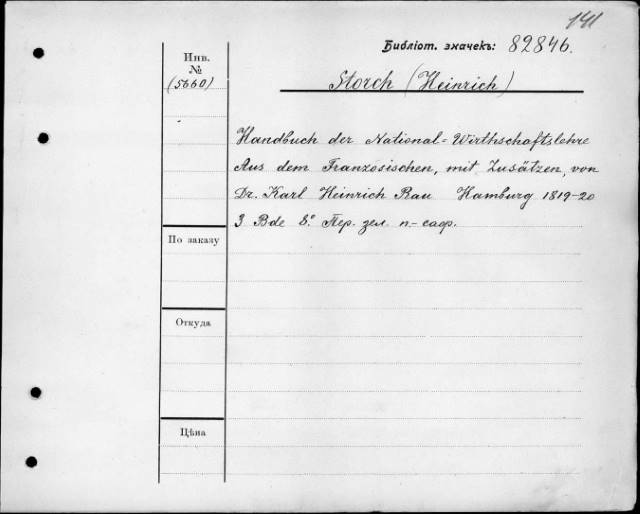 141
Библіот. значекъ: 82846.
Инв.
№
(5660)
Storch (Heinrich)
Handbuch der National=Wirthschaftslehre
Aus dem Französischen, mit Zusätzen, von
Dr. Karl Heinrich Rau Hamburg 1819-20
3 Bde 8º Пер. зел. п-саф.
По заказу
Откуда
Цѣна